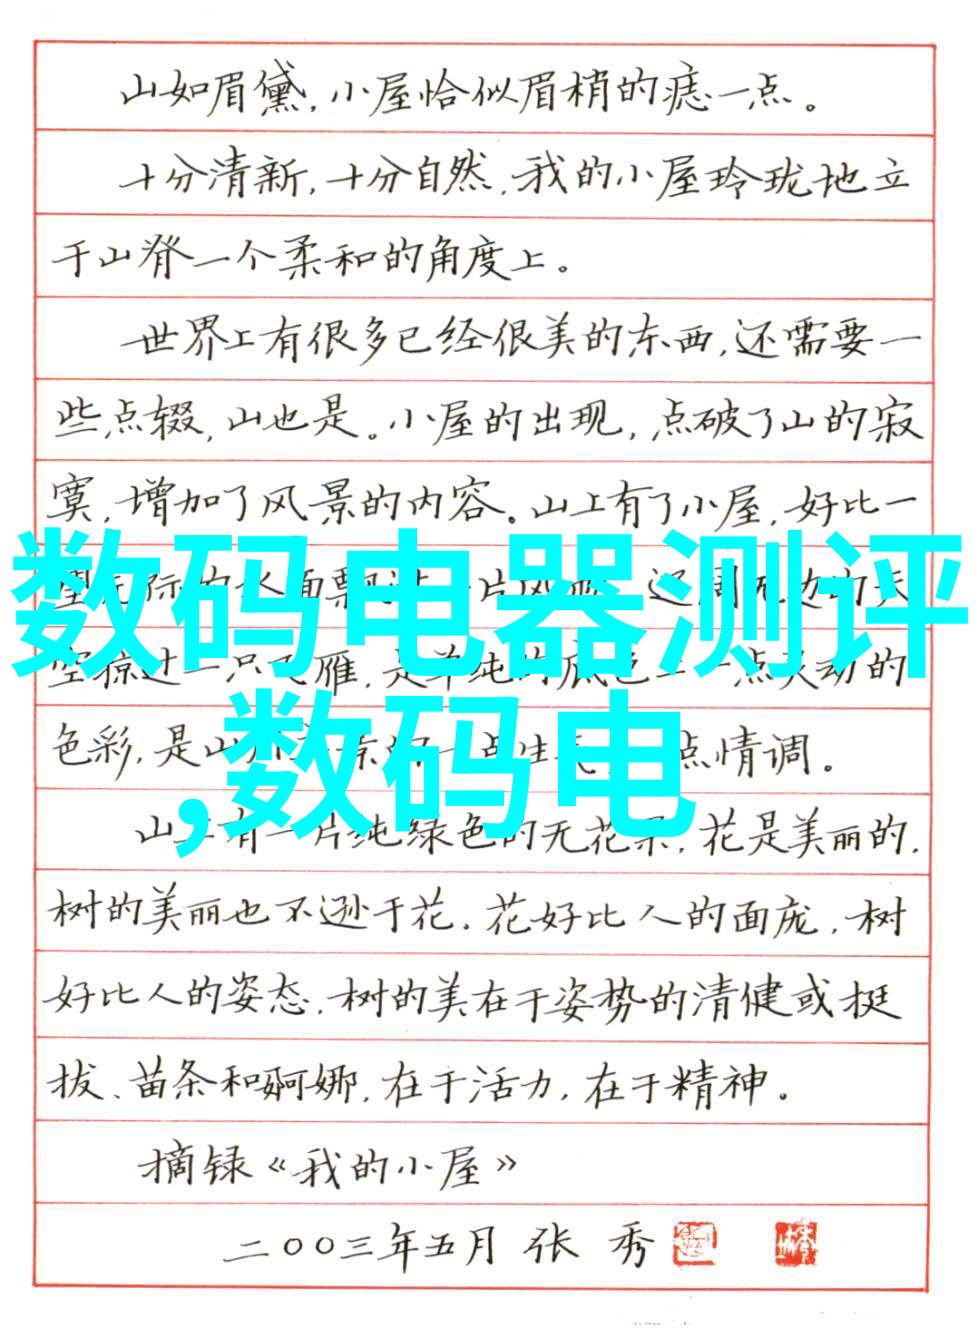 山如眉黛,小屋恰似眉梢的痣一点。
十分清新,十分自然,我的小屋玲珑地立
于山脊一个柔和的角度上。
世界上有很多已经很美的东西,还需要一
些点缀,山也是。小屋的出现,点破了山的寂
寞,增加了风景的内容。山上有了小屋,好比一
数码电器测评
空掠过一只飞雁,是单纯的底色上一点灵动的
,数码电
色彩,是山 情调。
山上有一片纯绿色的无花果,花是美丽的,
树的美丽也不逊于花。花好比人的面庞,树
好比人的姿态。树的美在于姿势的清健或挺
拔、苗条和婀娜,在于活力,在于精神。
摘录《我的小屋》
二〇〇三年五月 张 秀